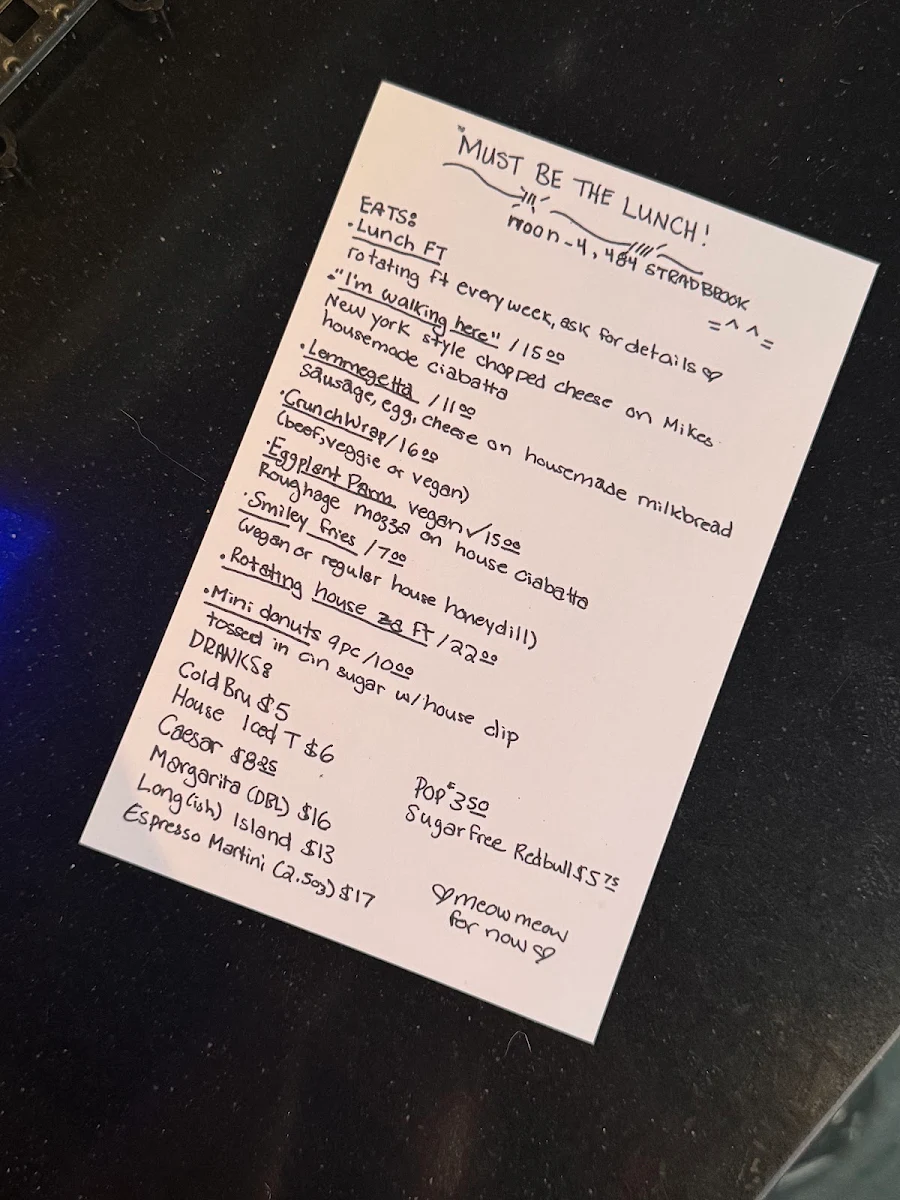 "MUST BE THE LUNCH!
noon-4, 484 STRADBROOK
=^^=
EATS:
• Lunch FT
rotating ft every week, ask for details ♡
• "I'm walking here" /1500
New York style chopped cheese on Mikes
housemade ciabatta
• Lemmegetta /1100
sausage, egg, cheese on housemade milkbread
• CrunchWrap/1600
(beef, veggie or vegan)
• Eggplant Parm vegan ✓ 1500
Roughage mozza on house ciabatta
• Smiley fries /700
(vegan or regular house honeydill)
• Rotating house za ft /2200
• Mini donuts 9pc /1000
tossed in cin sugar w/ house dip
DRANKS:
Cold Bru $5
House Iced T $6
Caesar $825
Margarita (DBL) $16
Long(ish) Island $13
Espresso Martini (2.5oz) $17
Pop $350
Sugar free Redbull $575
♡ meow meow
for now ♡